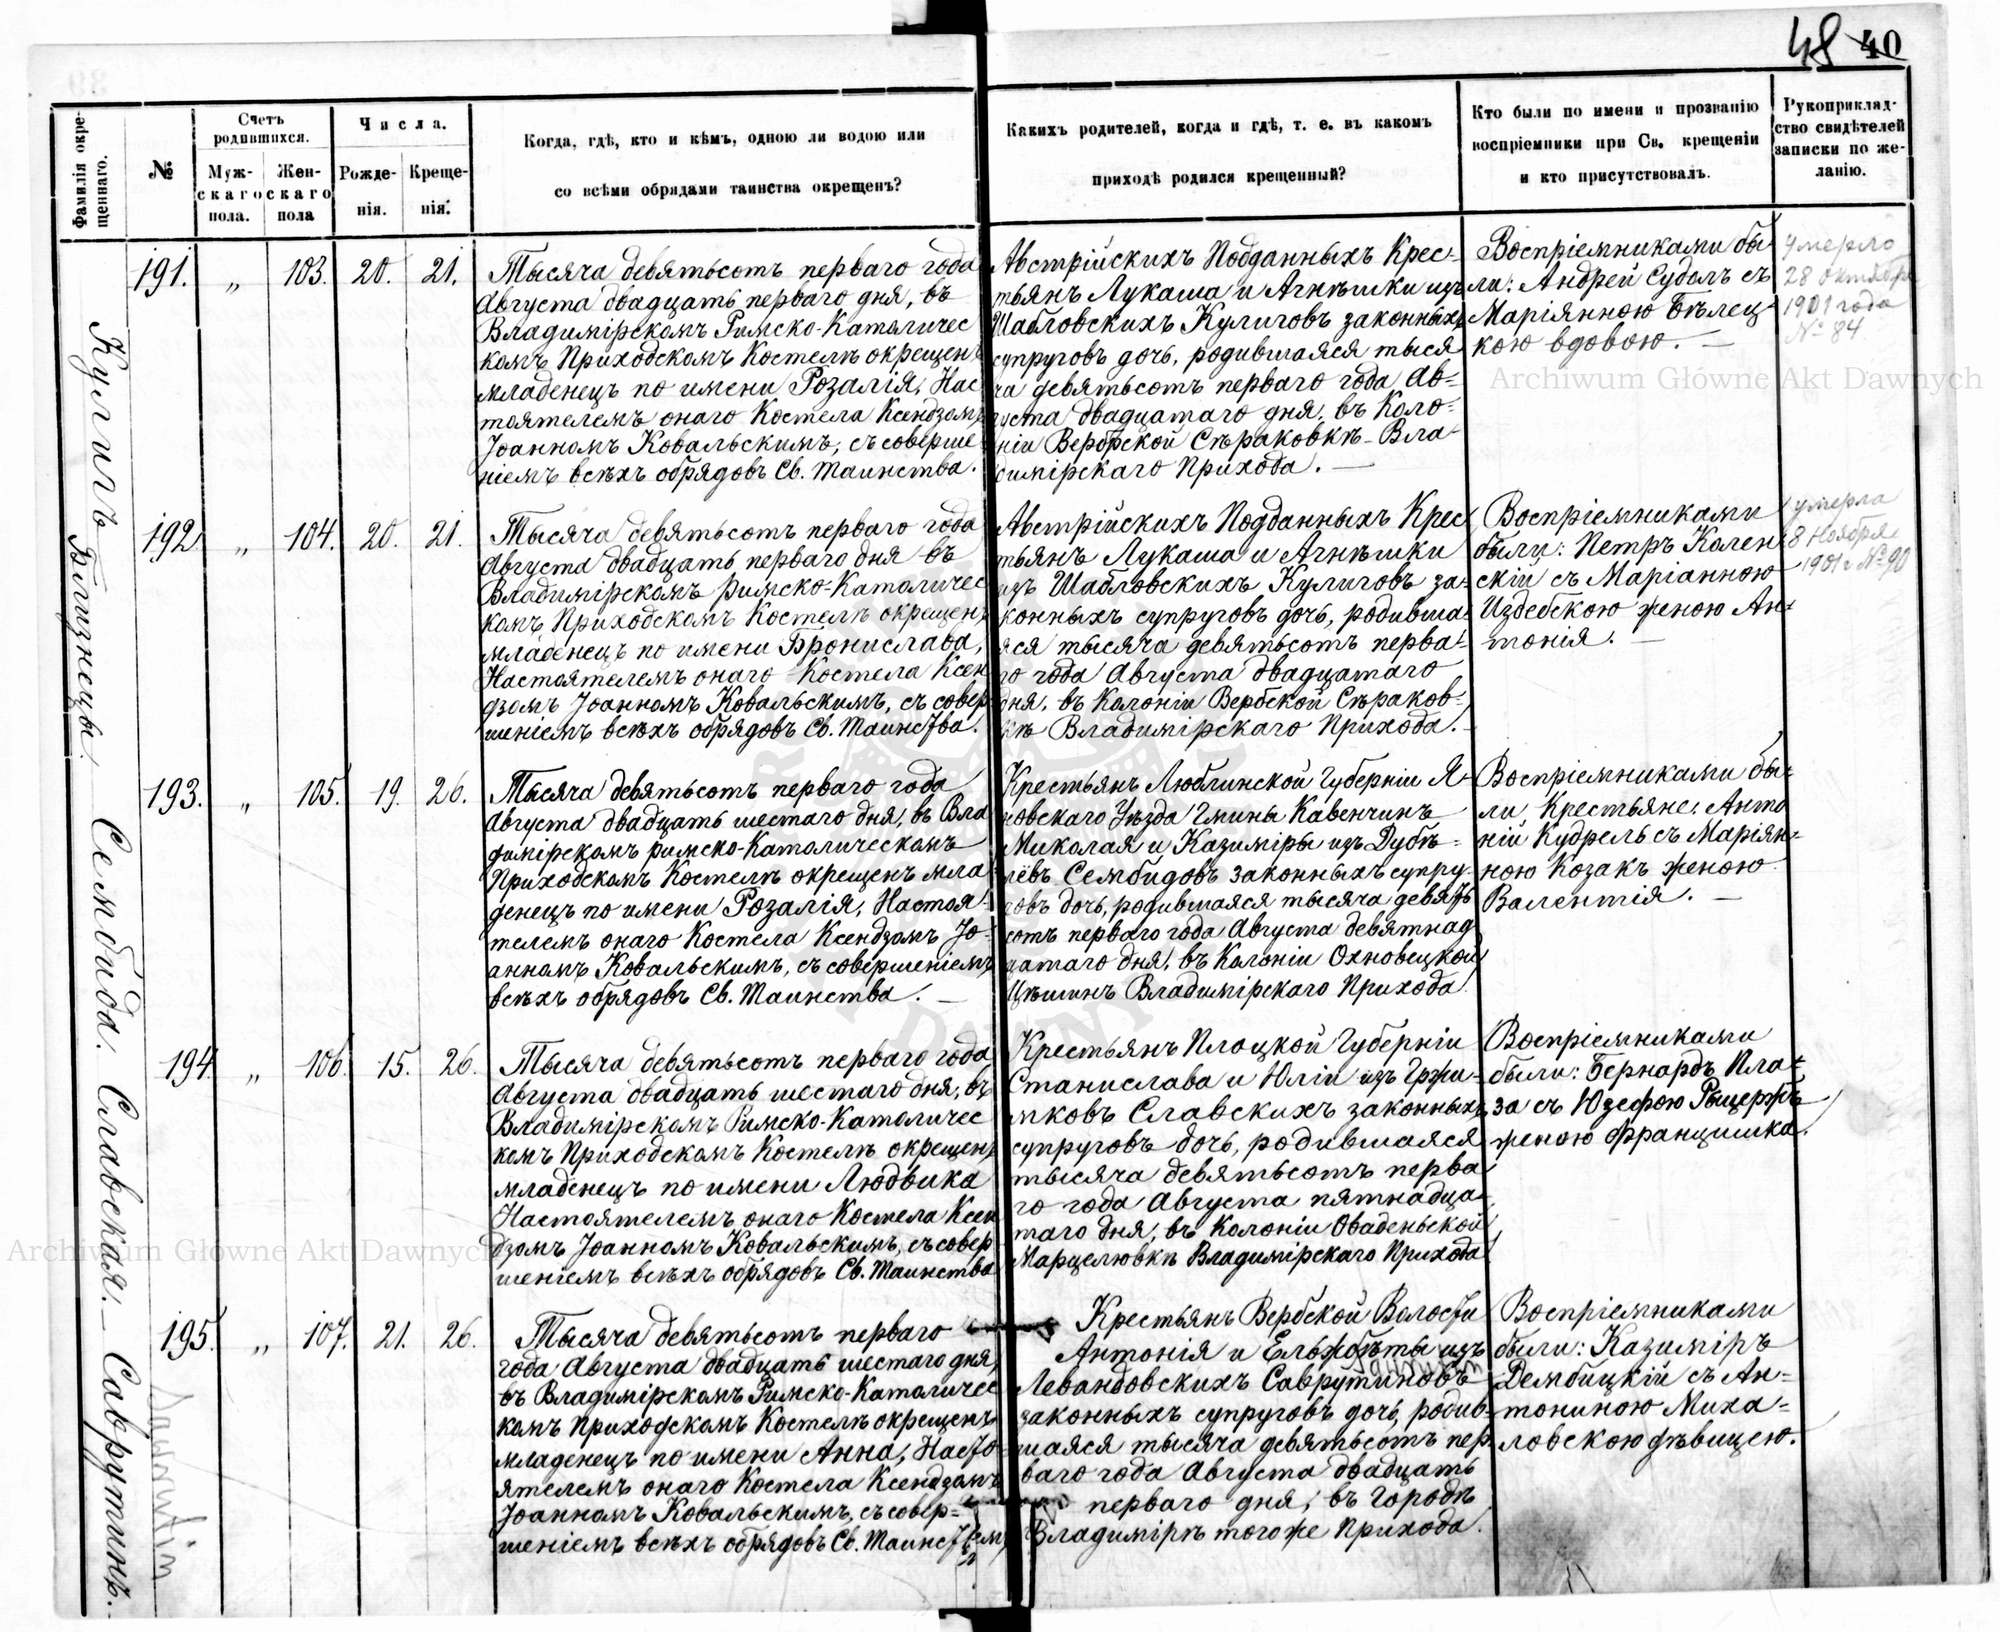 48 40
Фамилія окре-
щеннаго.
№
Счетъ
родившихся.
Муж-
скаго
пола.
Жен-
скаго
пола
Числа.
Рожде-
нія.
Креще-
нія.
Когда, гдѣ, кто и кѣмъ, одною ли водою или
со всѣми обрядами таинства окрещенъ?
Какихъ родителей, когда и гдѣ, т. е. въ какомъ
приходѣ родился крещенный?
Кто были по имени и прозванію
воспріемники при Св. крещеніи
и кто присутствовалъ.
Рукоприклад-
ство свидѣтелей
записки по же-
ланію.
Куличъ Близнецы.
191. „ 103. 20. 21.
Тысяча девятьсотъ перваго года
Августа двадцать перваго дня, въ
Владимірскомъ Римско-Католичес
комъ Приходскомъ Костелѣ окрещенъ
младенецъ по имени Розалія, Нас
тоятелемъ онаго Костела Ксендзомъ
Іоанномъ Ковальскимъ, съ соверше-
ніемъ всѣхъ обрядовъ Св. Таинства.
Австрійскихъ Подданныхъ Крес-
тьянъ Лукаша и Агнѣшки изъ
Шабловскихъ Куличовъ законныхъ
супруговъ дочь, родившаяся тыся
ча девятьсотъ перваго года Ав-
густа двадцатаго дня, въ Коло-
ніи Вербской Сѣраковкѣ Вла-
димірскаго Прихода.
Воспріемниками бы
ли: Андрей Судолъ съ
Маріянною Бѣлец-
кою вдовою.
Умерло
28 октября
1901 года
№ 84
192 „ 104. 20. 21.
Тысяча девятьсотъ перваго года
Августа двадцать перваго дня въ
Владимірскомъ Римско-Католичес
комъ Приходскомъ Костелѣ окрещенъ
младенецъ по имени Бронислава,
Настоятелемъ онаго Костела Ксен
дзомъ Іоанномъ Ковальскимъ, съ совер
шеніемъ всѣхъ обрядовъ Св. Таинства.
Австрійскихъ Подданныхъ Крес
тьянъ Лукаша и Агнѣшки
изъ Шабловскихъ Куличовъ за-
конныхъ супруговъ дочь, родивша-
яся тысяча девятьсотъ перва-
го года Августа двадцатаго
дня, въ Колоніи Вербской Сѣраков-
кѣ Владимірскаго Прихода.
Воспріемниками
были: Петръ Колен
скій съ Маріанною
Издебскою женою Ан-
тонія.
умерла
8 Ноября
1901 г №90
Сембида.
193. „ 105. 19. 26.
Тысяча девятьсотъ перваго года
Августа двадцать шестаго дня, въ Вла
димірскомъ Римско-Католическомъ
Приходскомъ Костелѣ окрещенъ мла
денецъ по имени Розалія, Настоя-
телемъ онаго Костела Ксендзомъ Іо-
анномъ Ковальскимъ, съ совершеніемъ
всѣхъ обрядовъ Св. Таинства.
Крестьянъ Люблинской Губерніи Я-
новскаго Уѣзда Гмины Кавенчинъ
Миколая и Казиміры изъ Дубѣ-
лёвъ Сембидовъ законныхъ супру
говъ дочь, родившаяся тысяча девять
сотъ перваго года Августа девятнад
цатаго дня, въ Колоніи Охновецкой
Цѣшинъ Владимірскаго Прихода
Воспріемниками бы-
ли, Крестьяне: Анто
ній Кудрель съ Маріян-
ною Козакъ женою
Валентія.
Славская.
194. „ 106. 15. 26.
Тысяча девятьсотъ перваго года
Августа двадцать шестаго дня, въ
Владимірскомъ Римско-Католичес
комъ Приходскомъ Костелѣ окрещенъ
младенецъ по имени Людвика
Настоятелемъ онаго Костела Ксен
дзомъ Іоанномъ Ковальскимъ, съ совер
шеніемъ всѣхъ обрядовъ Св. Таинства
Крестьянъ Плоцкой Губерніи
Станислава и Юліи изъ Гржи-
мковъ Славскихъ законныхъ
супруговъ дочь, родившаяся
тысяча девятьсотъ перва
го года Августа пятнадца-
таго дня, въ Колоніи Оваденьской
Марцелювкѣ Владимірскаго Прихода
Воспріемниками
были: Бернардъ Пла-
за съ Юзефою Рыцержъ
женою Францишка.
Саврутинъ.
195. „ 107. 21. 26.
Тысяча девятьсотъ перваго
года Августа двадцать шестаго дня,
въ Владимірскомъ Римско-Католичес
комъ Приходскомъ Костелѣ окрещенъ
младенецъ по имени Анна, Насто-
ятелемъ онаго Костела Ксендзомъ
Іоанномъ Ковальскимъ, съ совер-
шеніемъ всѣхъ обрядовъ Св. Таинств
Крестьянъ Вербской Волости
Антонія и Ельжбѣты изъ
Левандовскихъ Саврутиновъ
законныхъ супруговъ дочь, родив-
шаяся тысяча девятьсотъ пер
ваго года Августа двадцать
перваго дня, въ Городѣ
Владимірѣ тогоже Прихода.
Воспріемниками
были: Казиміръ
Дембицкій съ Ан-
тониною Миха-
ловскою дѣвицею.
Archiwum Główne Akt Dawnych
Archiwum Główne Akt Dawnych